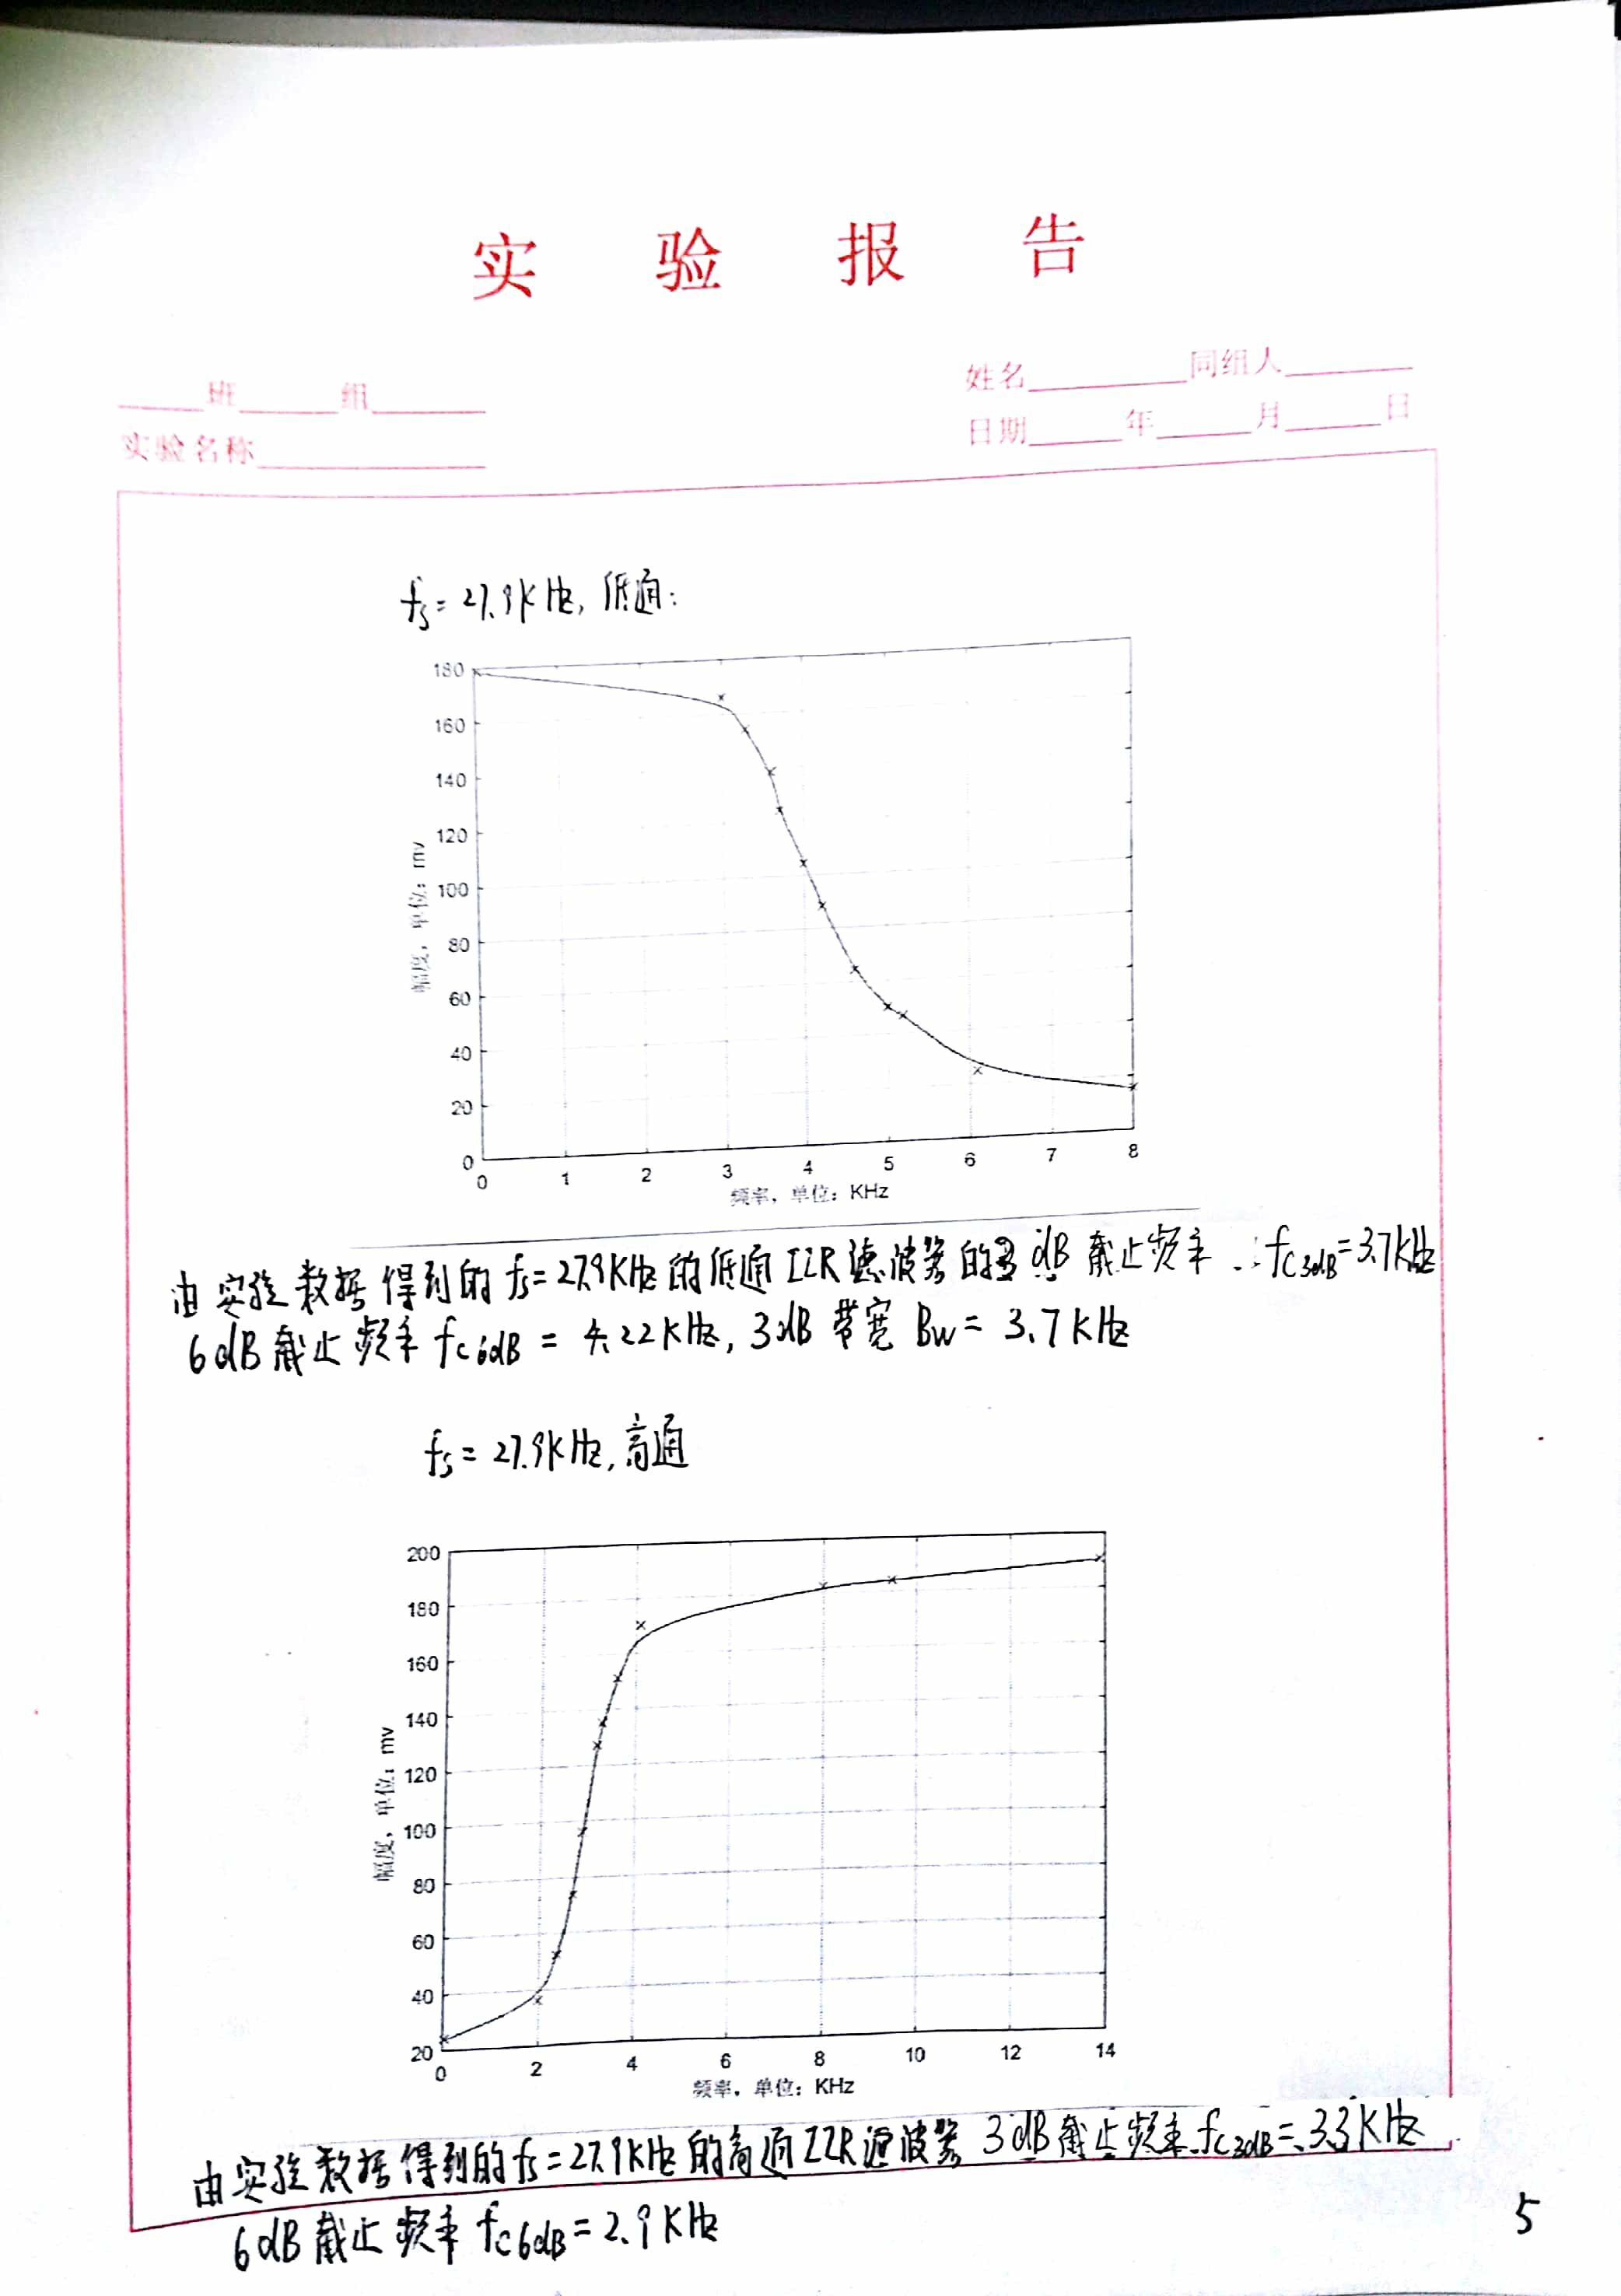 实 验 报 告
姓名________同组人________
____班____组____
日期____年____月____日
实验名称________
fs=27.9KHz, 低通:
180
160
140
120
100
80
60
40
20
0
幅度, 单位: mv
0 1 2 3 4 5 6 7 8
频率, 单位: KHz
由实验数据得到的fs=27.9KHz的低通IIR滤波器的3dB截止频率 fc3dB=3.7KHz
6dB截止频率fc6dB = 4.22KHz, 3dB带宽 Bw = 3.7KHz
fs = 27.9KHz, 高通
200
180
160
140
120
100
80
60
40
20
幅度, 单位: mv
0 2 4 6 8 10 12 14
频率, 单位: KHz
由实验数据得到的fs=27.9KHz的高通IIR滤波器 3dB截止频率fc3dB=3.3KHz
6dB截止频率fc6dB=2.9KHz
5